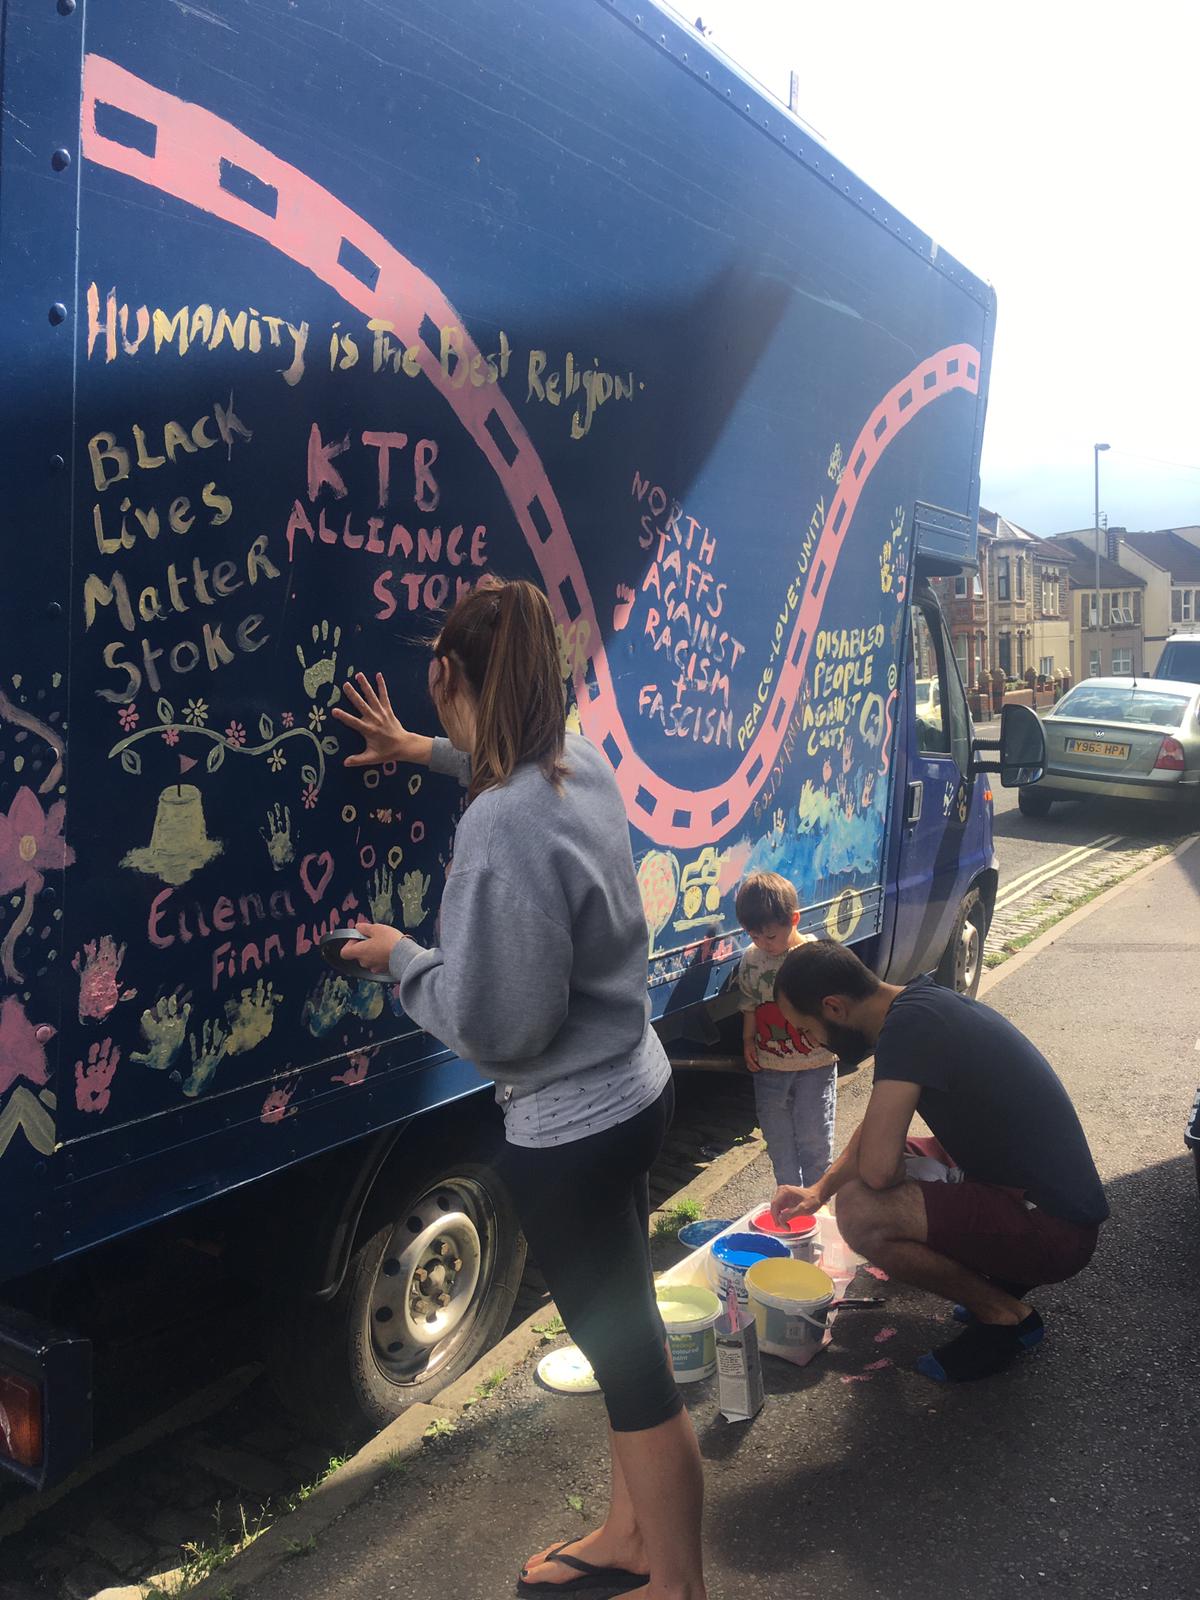 HUMANiTY is The Best Religion.
BLACK
Lives
Matter
Stoke
KTB
ALLIANCE
NORTH
STAFFS
AGAINST
RACISM
+
FASCISM
PEACE + LOVE + UNITY
DISABLED
PEOPLE
AGAINST
CUTS
Ellena
Finn Luna
coloured
paint
Y963 HPA